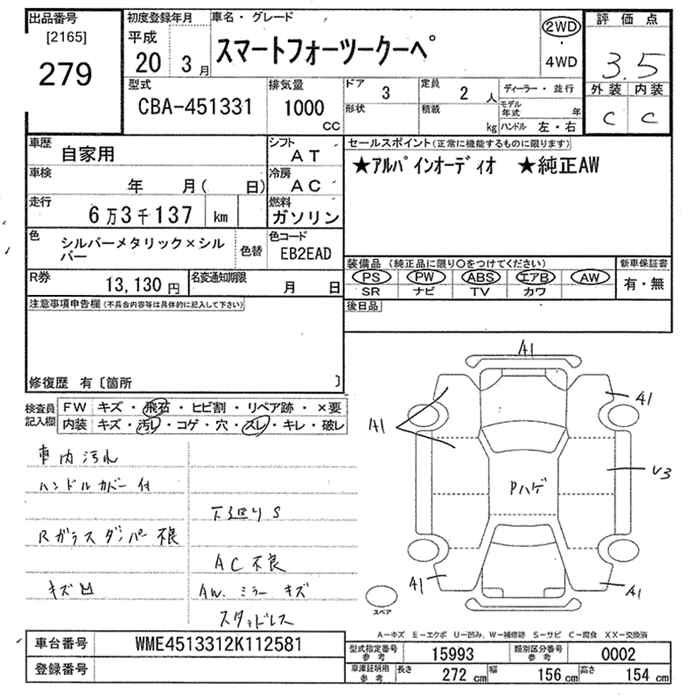 出品番号
[2165]
279
初度登録年月
平成
20 3月
車名・グレード
スマートフォーツークーペ
2WD
4WD
評価点
3.5
外装 内装
C C
型式
CBA-451331
排気量
1000
CC
ドア 3
形状
定員 2 人
積載 kg
ディーラー・並行
モデル年式 年
ハンドル 左・右
車歴
自家用
シフト
AT
車検
年 月( 日)
冷房
AC
走行
6万3千137 km
燃料
ガソリン
色
シルバーメタリック×シルバー
色替
色コード
EB2EAD
R券
13,130 円
名変通知期限
月 日
セールスポイント(正常に機能するものに限ります)
★アルパインオーディオ ★純正AW
装備品(純正品に限り○をつけてください)
PS PW ABS エアB AW
SR ナビ TV カワ
新車保証書
有・無
注意事項申告欄(不具合内容等は具体的に記入して下さい)
後日品
修復歴 有〔箇所 〕
検査員記入欄
FW キズ・飛石・ヒビ割・リペア跡・×要
内装 キズ・汚レ・コゲ・穴・スレ・キレ・破レ
車内汚れ
ハンドルカバー付
下廻りS
Rガラスダンパー不良
AC不良
キズ凹
AW.ミラーキズ
スタッドレス
A1
A1
A1
U3
Pハゲ
A1
A1
スペア
A-キズ E-エクボ U-凹み、W-補修跡 S-サビ C-腐食 XX-交換済
車台番号
WME4513312K112581
登録番号
型式指定番号参考
15993
類別区分番号参考
0002
車庫証明用参考
長さ 272 cm 幅 156 cm 高さ 154 cm